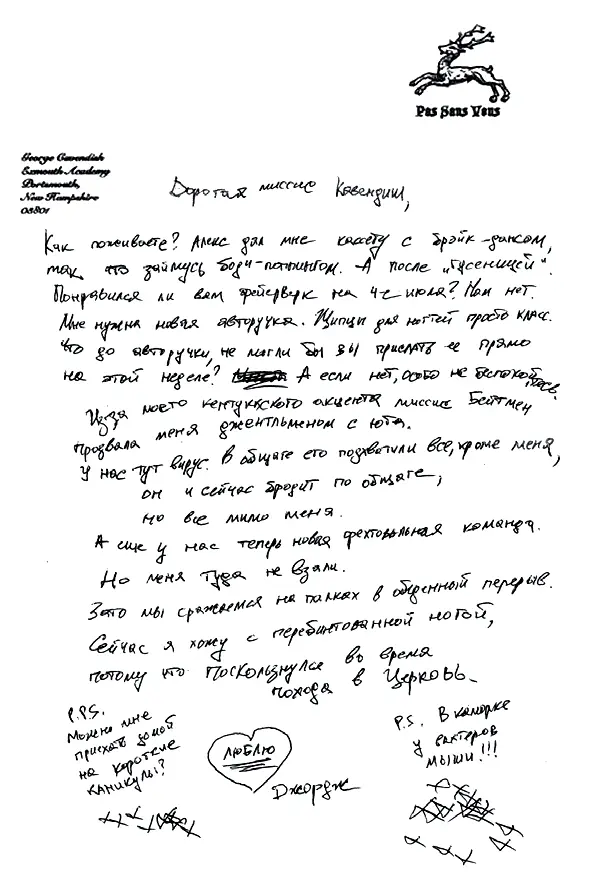 Pas Sans Vous
George Cavendish
Exmouth Academy
Portsmouth,
New Hampshire
03801
Дорогая миссис Кавендиш,
Как поживаете? Алекс дал мне кассету с брэйк-дансом,
так что займусь боди-поппингом. А после „гусеницей“.
Понравился ли вам фейерверк на 4-е июля? Нам нет.
Мне нужна новая авторучка. Щипцы для ногтей просто класс.
Что до авторучки, не могли бы вы прислать ее прямо
на этой неделе? А если нет, особо не беспокойтесь.
Из-за моего кентуккского акцента миссис Бейтмен
прозвала меня джентльменом с юга.
У нас тут вирус. В общаге его подхватили все, кроме меня,
он и сейчас бродит по общаге,
но все мимо меня.
А еще у нас теперь новая фехтовальная команда.
Но меня туда не взяли.
Зато мы сражаемся на палках в обеденный перерыв.
Сейчас я хожу с перебинтованной ногой,
потому что поскользнулся во время
похода в Церковь.
P.P.S.
Можно мне
приехать домой
на короткие
каникулы?
ЛЮБЛЮ
Джордж
P.S. В каморке
у вахтеров
мыши!!!